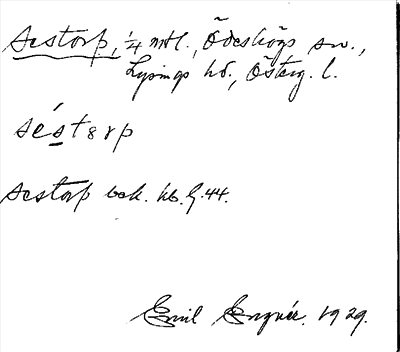 Sestorp, 1/4 mtl., Ödeshögs sn.,
Lysings hd., Österg. l.
séstɞrp
Sestorp bek. hb. G. 44.
Emil Engnér. 1929.